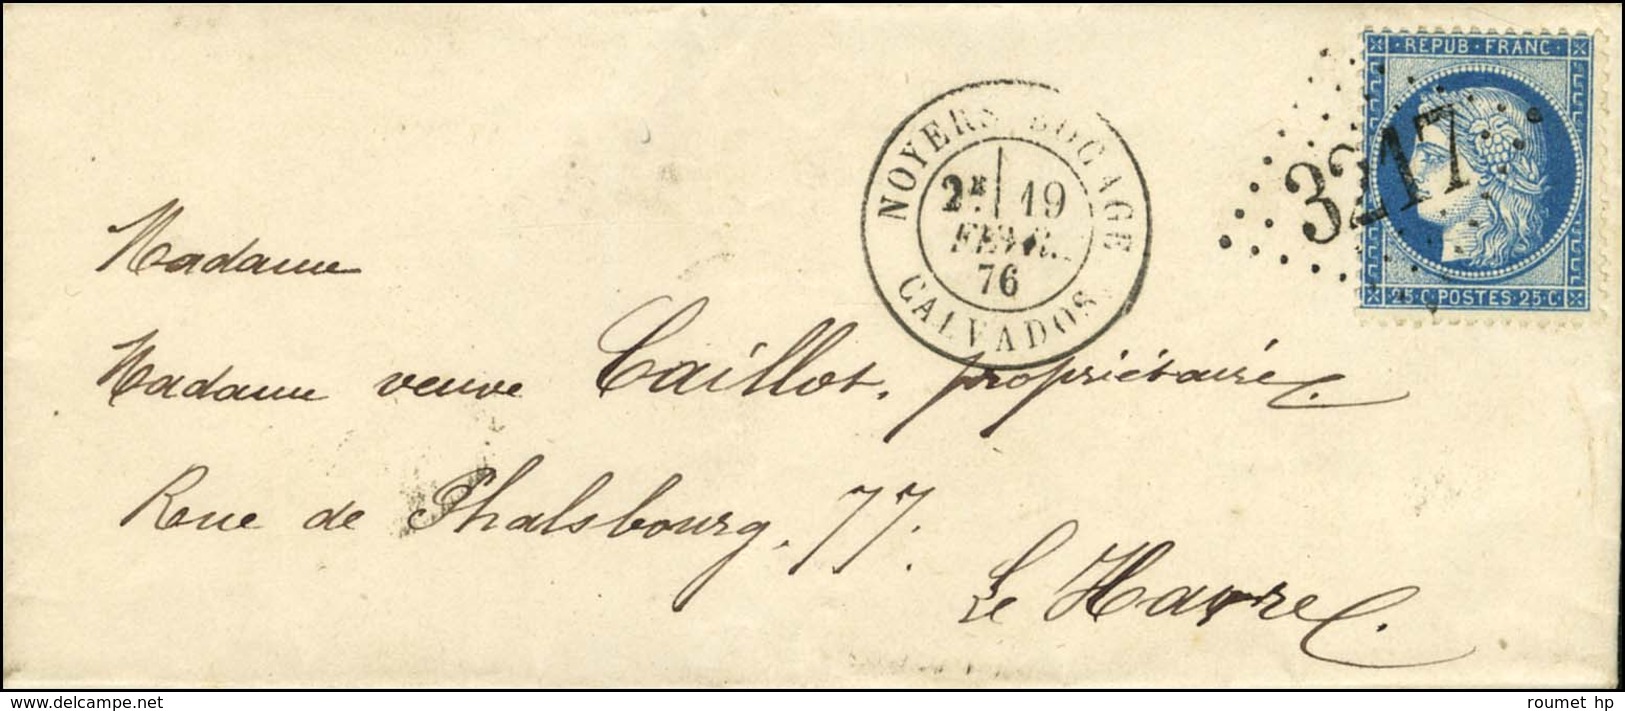 REPUB · FRANC
3217
25 C · POSTES · 25 C
NOYERS BOCAGE
2E 19
FEVR.
76
CALVADOS
Madame
Madame veuve Caillot, propriétaire
Rue de Phalsbourg, 77.
Le Havre.
delcampe.net
roumet hp